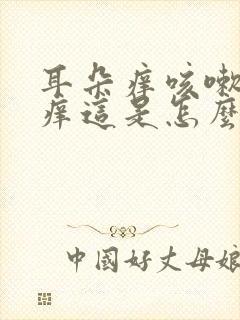 耳朵痒咳嗽
痒這是怎麼
中國好丈母娘